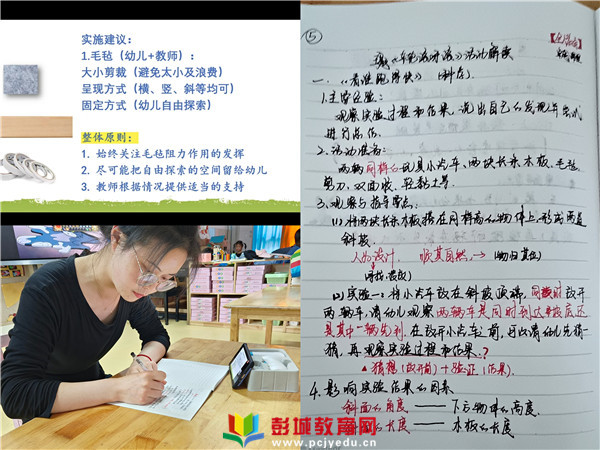 实施建议：
1.毛毡（幼儿+教师）：
大小剪裁（避免太小及浪费）
呈现方式（横、竖、斜等均可）
固定方式（幼儿自由探索）
整体原则：
1. 始终关注毛毡阻力作用的发挥
2. 尽可能把自由探索的空间留给幼儿
3. 教师根据情况提供适当的支持
⑤
活动解读
一、《看谁跑得快》（科学）
1.主要经验：
观察实验过程和结果，说出自己的发现并尝试
进行记录。
2.活动准备：
两辆同样的玩具小汽车、两块长条木板、毛毡、
剪刀、双面胶、轻黏土等。
3.观察与指导要点：
(1)将两块长条木板搭在同样高的物体上，形成两座
斜坡。
顺其自然，→
(2)实验一：将小汽车放在斜坡顶端，同时放开
两辆车，请幼儿观察两辆车是同时到达坡底还
是其中一辆先到。在放开小汽车之前，可以请幼儿先猜一
猜，再观察实验过程和结果。？
▲猜想（放开前）+验证（结果）
4.影响实验结果的因素
斜面的角度 —— 下方物体的高度
的长度 —— 木板的长度
彭城教育网
www.pcjyedu.cn